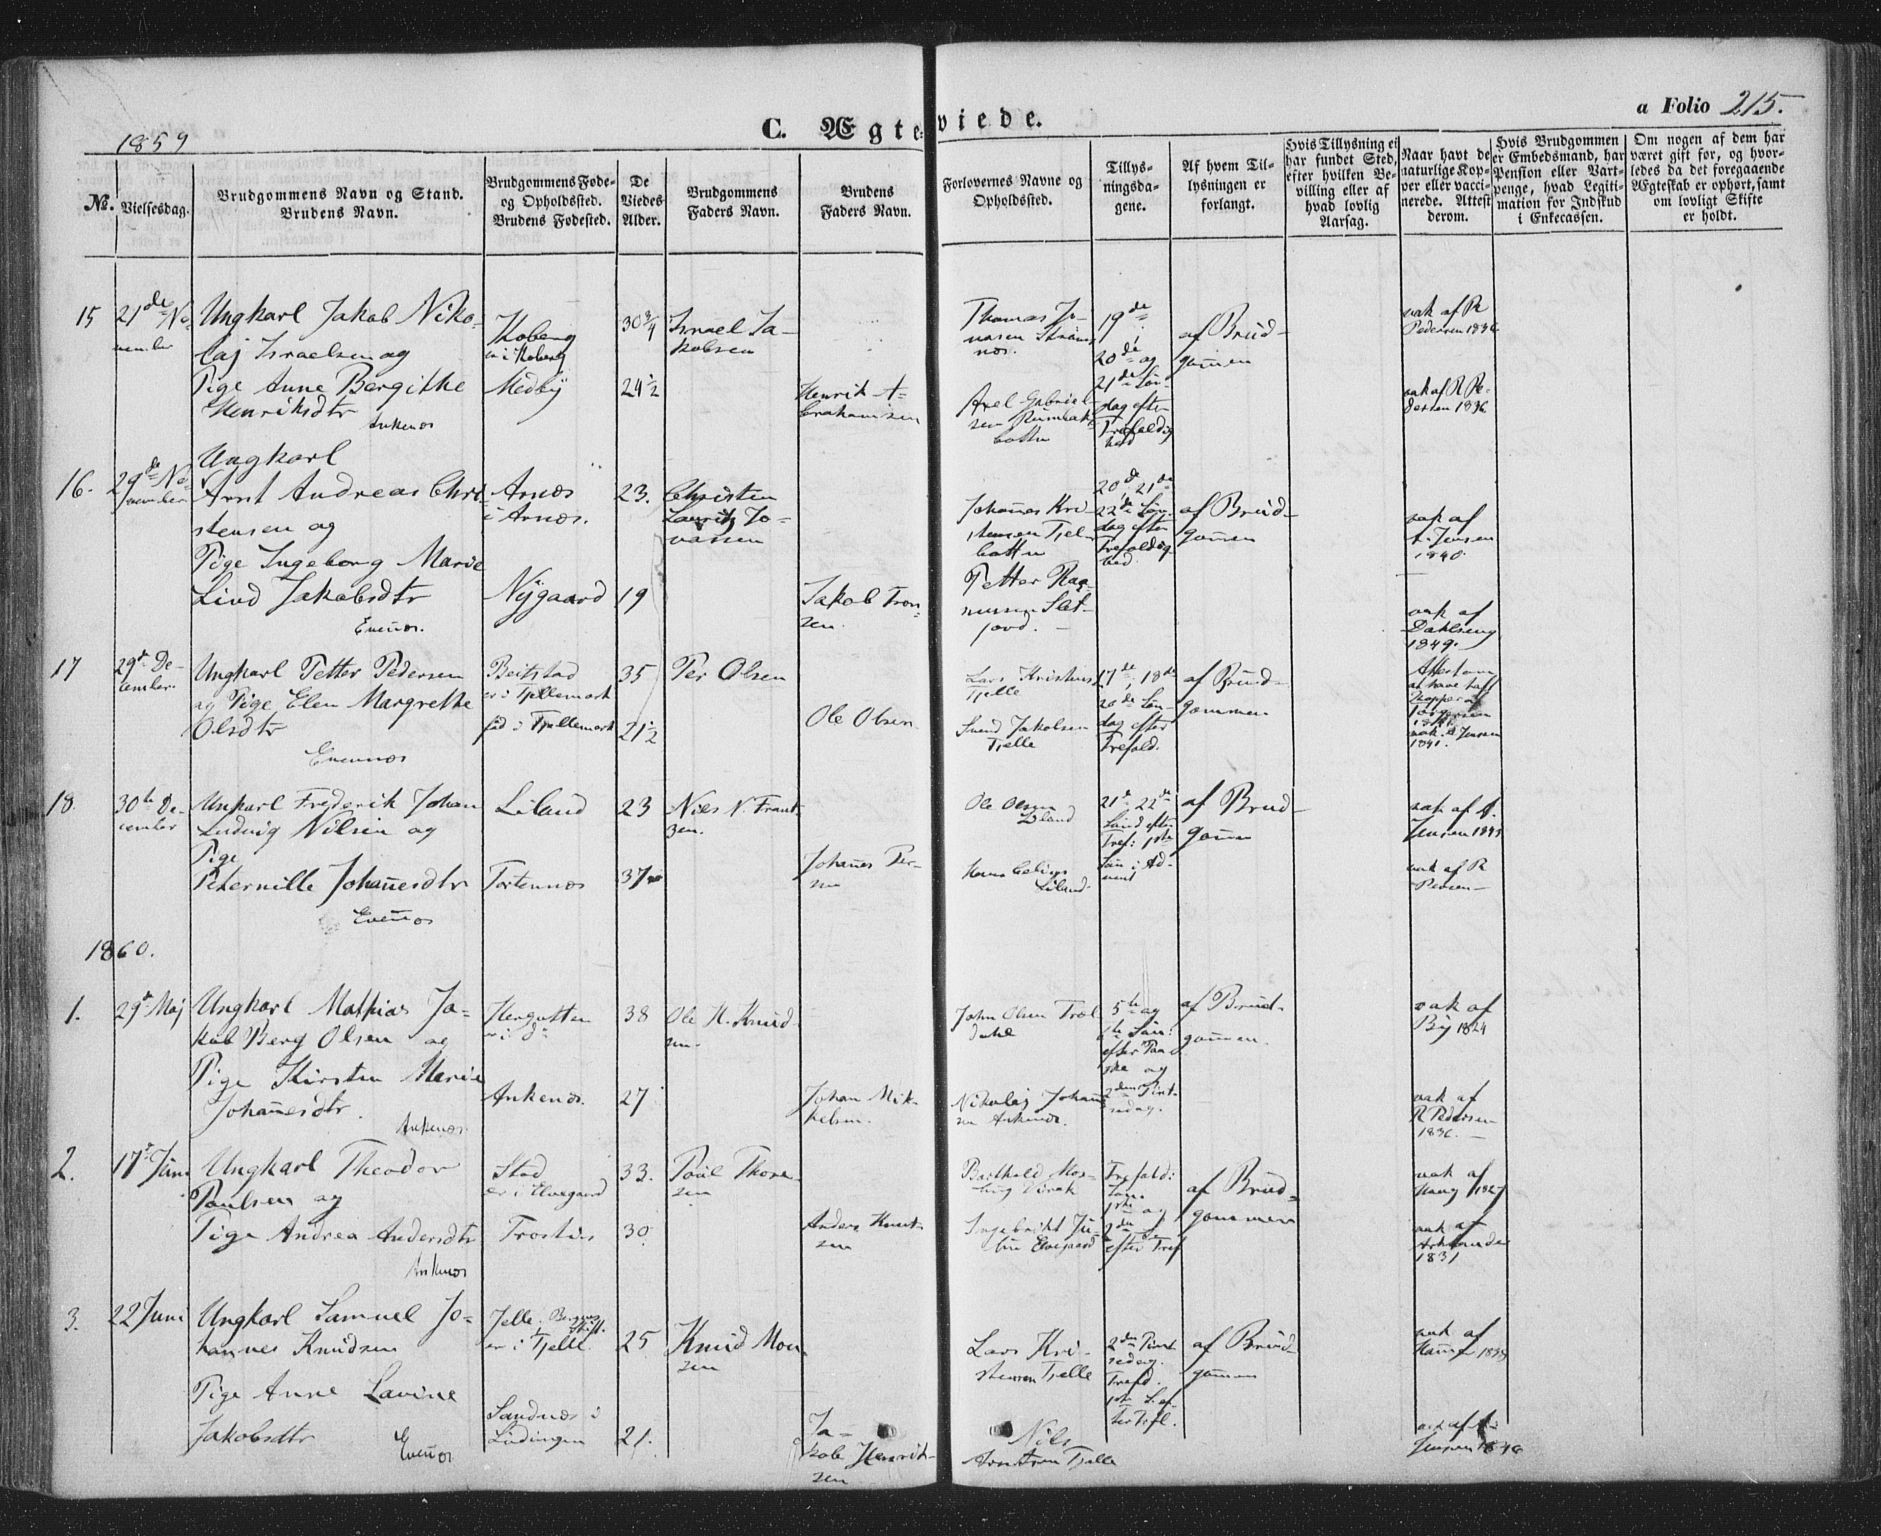 C. Ægteviede.
a Folio 215.
1859
No.
Vielsesdag.
Brudgommens Navn og Stand.
Brudens Navn.
Brudgommens Føde-
og Opholdssted.
Brudens Fødested.
De
Viedes
Alder.
Brudgommens
Faders Navn.
Brudens
Faders Navn.
Forlovernes Navne og
Opholdssted.
Tillys-
ningsda-
gene.
Af hvem Til-
lysningen er
forlangt.
Hvis Tillysning ei
har fundet Sted,
efter hvilken Be-
villing eller af
hvad lovlig
Aarsag.
Naar havt de
naturlige Kop-
per eller vacci-
nerede. Attest
derom.
Hvis Brudgommen
er Embedsmand, har
Pension eller Vart-
penge, hvad Legiti-
mation for Indskud
i Enkecassen.
Om nogen af dem har
været gift før, og hvor-
ledes da det foregaaende
Ægteskab er ophørt, samt
om lovligt Skifte
er holdt.
15
21de No-
vember
Ungkarl Jakob Niko-
laj Israelsen og
Pige Anne Bergithe
Henriksdtr
Ankenes
Koberg
er i Koberg
Medby
30 3/4
24 1/2
Israel Ja-
kobsen
Henrik A-
brahamsen
Thomas Jo-
nasen
Axel Gabriel-
sen
19de
20de og
21de Søn-
dag efter
Trefoldig
hed
af Brud-
gommen
vak af R
Pedersen 1836
vak af R Pe-
dersen 1836
16.
29de No-
vember
Ungkarl
Arnt Andreas Chri-
stensen og
Pige Ingeborg Marie
Lind Jakobsdtr
Evenæs.
Arnes
i Arnes.
Nygaard
23.
19
Christen
Lauritz Jo-
nassen
Jakob Tron-
sen.
Johannes Kri-
stensen Tjel-
botten
Petter Ras-
mussen
20de 21de
22de Søn-
dag efter
Trefoldig
hed.
af Brud-
gommen
vak af
A. Jensen
1840.
vak af
1849.
17
29de De-
cember.
Ungkarl Petter Pedersen
og Pige Elen Margrethe
Olsdtr
Evenes
Beitstad
er i Fjellemark
fød i Fjellemark
35
21 1/2
Per Olsen
Ole Olsen
Lars Kristens
Tjelle
Svend Jakobsen
Tjelle
17de, 18de
20de Søn-
dag efter
Trefold.
af Brud-
gommen
vak. A Jensen
1841.
18
30te De-
cember
Unkarl Frederik Johan
Ludvig Nilsen og
Pige
Peternille Johannesdtr
Evenes
Liland
23
37
Nils N. Frant-
zen.
Johannes Per-
sen
Ole Olsen
Liland
Liland
21de 22de
Sønd efter
Tref: 1ste
Søn i Ad-
vent
af Brud-
gommen
vak af A.
Jensen
vak af R
1860.
1.
29de Maj
Ungkarl Mathias Ja-
kob Berg Olsen og
Pige Kirsten Marie
Johannesdtr.
Ankenes.
Hergotten
er i do
Ankenes.
38
27
Ole H. Knud-
sen.
Johan Mik-
kelsen.
John Olsen Trol-
dahl
Nikolaj Johans
sen Ankenes.
5te og
6te Søn.
efter Paa-
ske og
2den Pint-
sedag.
af Brud-
gommen.
vak af
By 1824
vak af
R Pedersen
1836.
2.
17de Juni
Ungkarl Theodor
Paulsen og
Pige Andrea Andersdtr
Ankenes
Stad
er i Elvegaard
33.
30.
Poul Thore-
sen
Anders Knut-
sen
Ingebrikt
Elvegaard
Trefold:
Søn.
1ste og
2den S
efter Tref
af Brud-
gommen
vak af
vak af
1831
3.
22 Juni
Ungkarl Samuel Jo-
hannes Knudsen
Pige Anne Lavine
Jakobsdtr
Evenes
er i Tjelle.
Sandnes i
Lødingen
25
21.
Knud Mon-
sen
Ja-
kob Henrik-
sen
Lars Kri-
stensen Tjelle
Nils
Arntsen Tjelle
2den Pint
sedag.
Trefd.
1ste S. ef-
ter Trefl.
af Brud-
gommen
vak af
vak af A.
Jensen